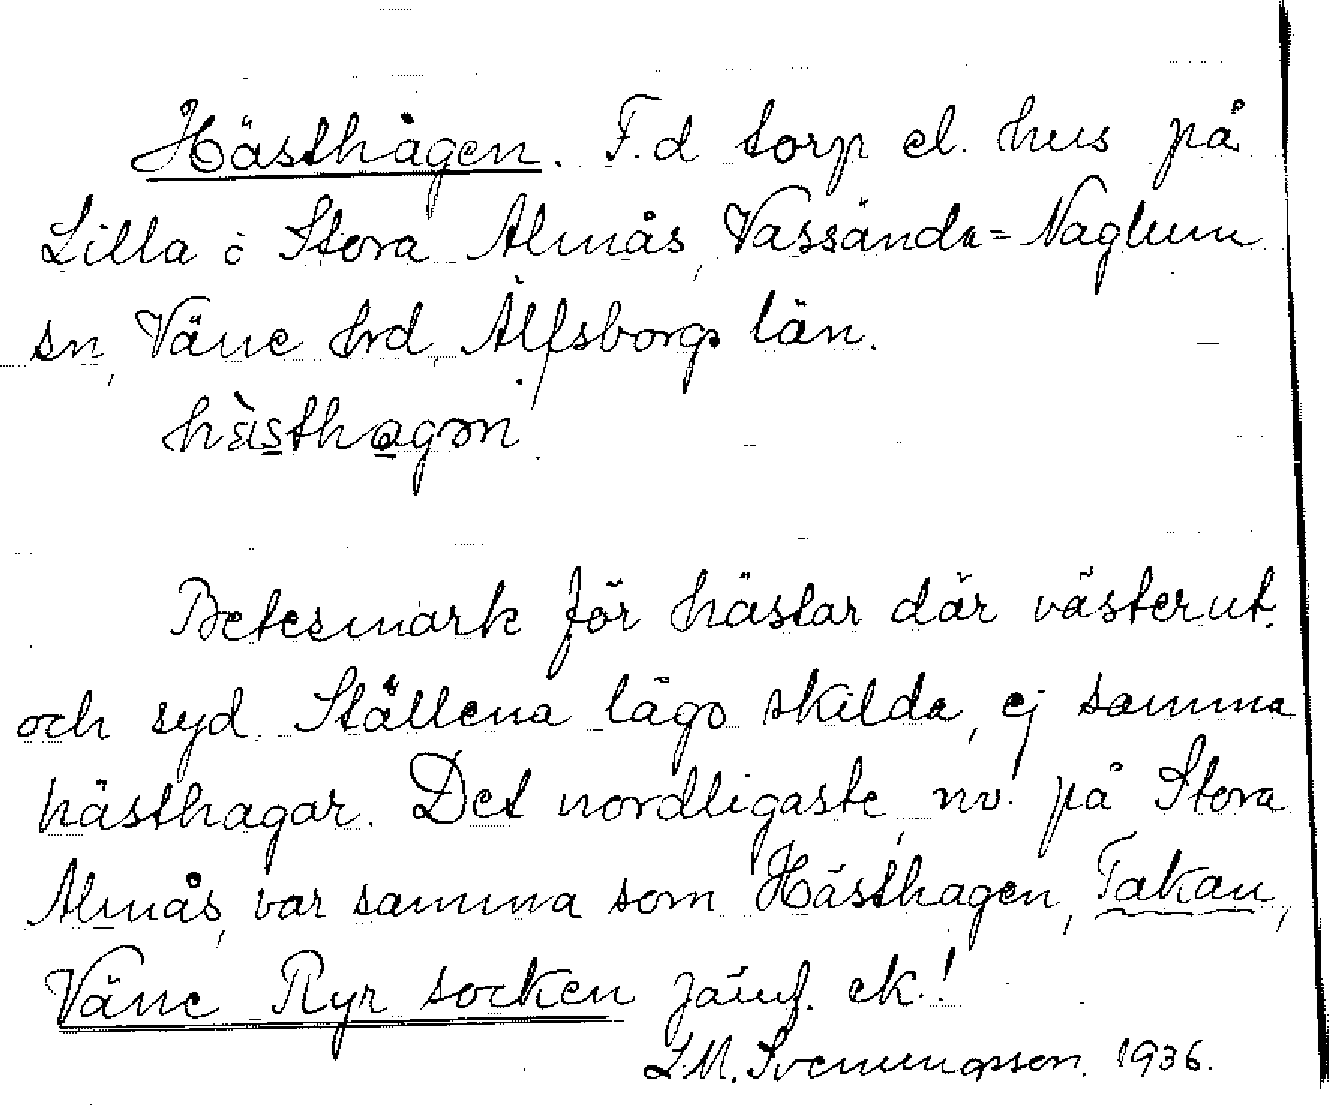 Hästhagen. F.d torp el. hus på
Lilla o Stora Almås, Vassända=Naglum
sn, Väne hrd, Älfsborgs län.
hàsthagən.
Betesmark för hästar där västerut
och syd. Ställena lågo skilda, ej samma
hästhagar. Det nordligaste, nv. på Stora
Almås, var samma som Hästhagen, Takan,
Väne Ryr socken jämf. ek.!
L.M. Svenungsson. 1936.